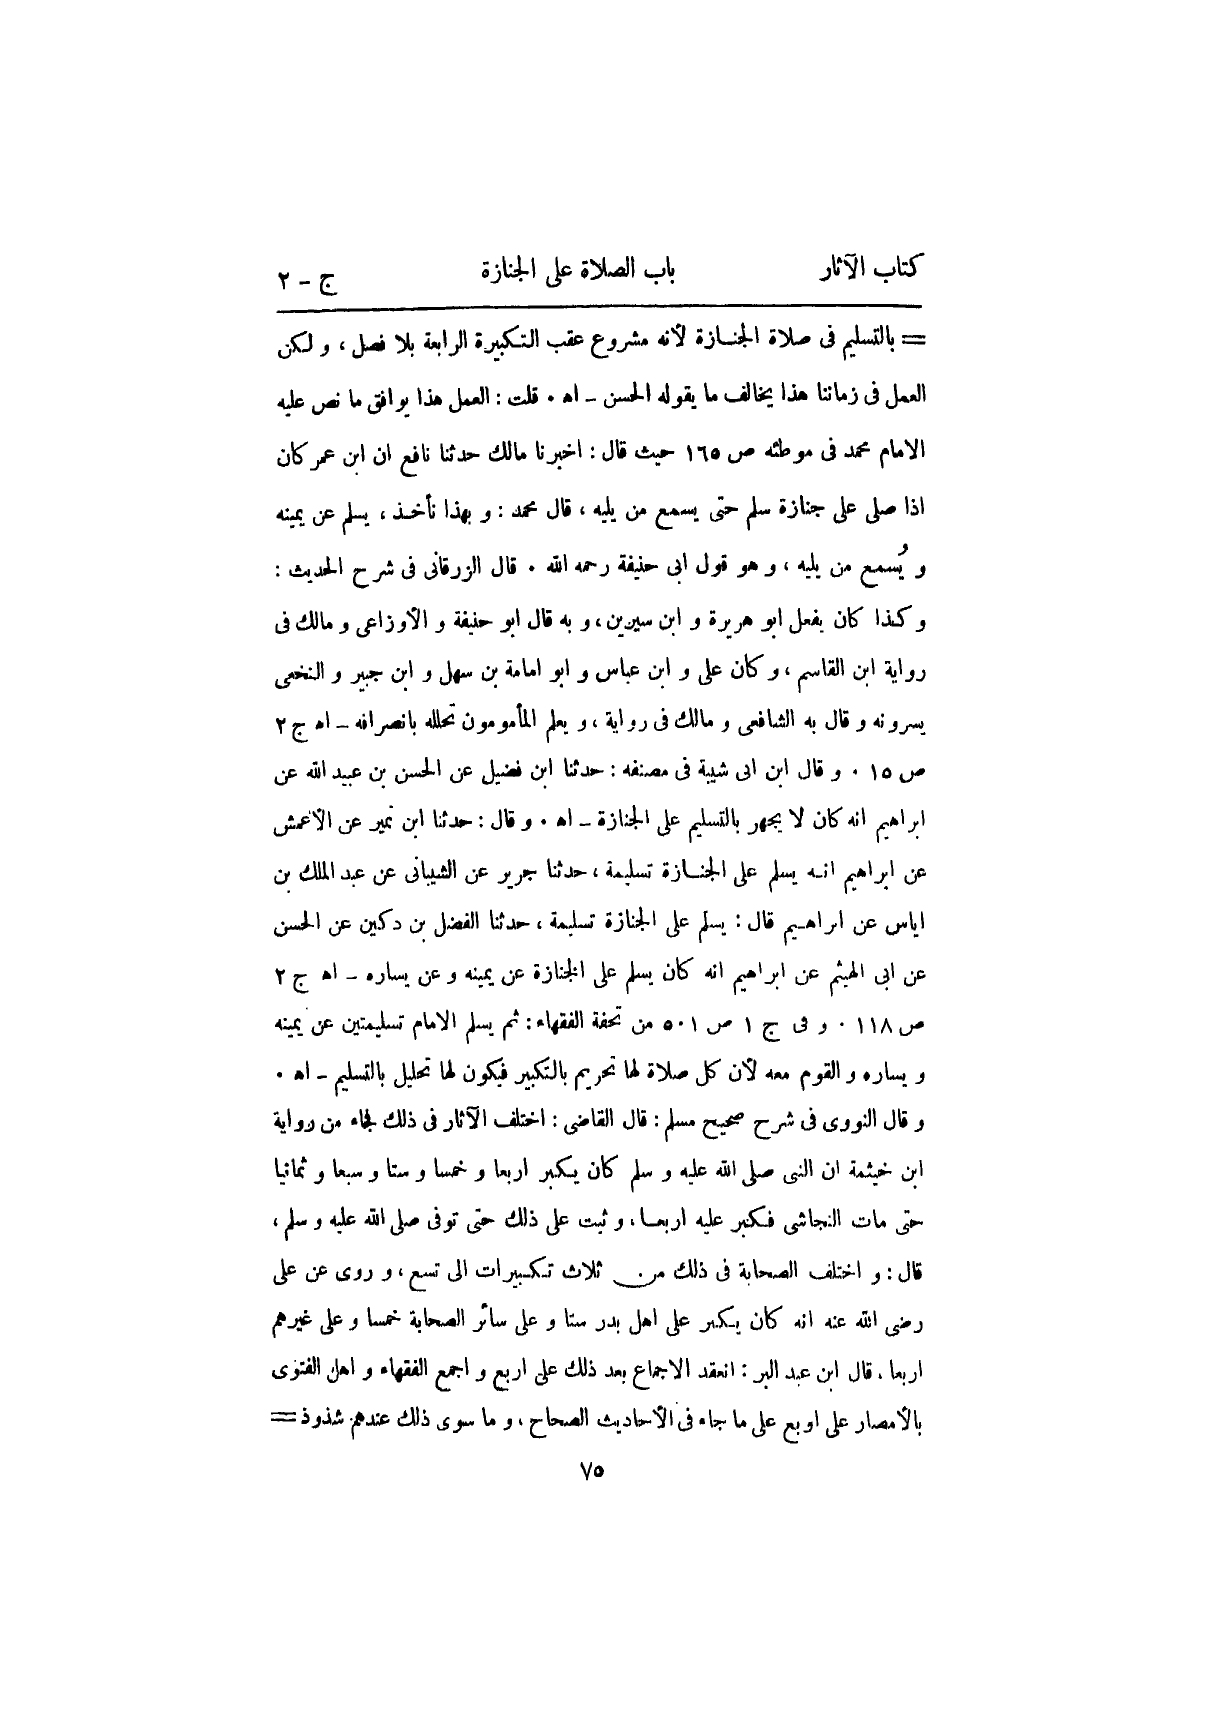 كتاب الآثار باب الصلاة على الجنازة ج - ٢
= بالتسليم فى صلاة الجنازة لأنه مشروع عقب التكبيرة الرابعة بلا فصل ، و لكن
العمل فى زماننا هذا يخالف ما يقوله الحسن - اه . قلت : العمل هذا يوافق ما نص عليه
الامام محمد فى موطئه ص ١٦٥ حيث قال : اخبرنا مالك حدثنا نافع ان ابن عمر كان
اذا صلى على جنازة سلم حتى يسمع من يليه ، قال محمد : و بهذا نأخذ ، يسلم عن يمينه
و يُسمع من يليه ، و هو قول ابى حنيفة رحمه الله . قال الزرقانى فى شرح الحديث :
و كذا كان يفعل ابو هريرة و ابن سيرين ، و به قال ابو حنيفة و الأوزاعى و مالك فى
رواية ابن القاسم ، و كان على و ابن عباس و ابو امامة بن سهل و ابن جبير و النخعى
يسرونه و قال به الشافعى و مالك فى رواية ، و يعلم المأمومون تحلله بانصرافه - اه ج ٢
ص ١٥ . و قال ابن ابى شيبة فى مصنفه : حدثنا ابن فضيل عن الحسن بن عبيد الله عن
ابراهيم انه كان لا يجهر بالتسليم على الجنازة - اه . و قال : حدثنا ابن نمير عن الأعمش
عن ابراهيم انه يسلم على الجنازة تسليمة ، حدثنا جرير عن الشيبانى عن عبد الملك بن
اياس عن ابراهيم قال : يسلم على الجنازة تسليمة ، حدثنا الفضل بن دكين عن الحسن
عن ابى الهيثم عن ابراهيم انه كان يسلم على الجنازة عن يمينه و عن يساره - اه ج ٢
ص ١١٨ . و فى ج ١ ص ٥٠١ من تحفة الفقهاء : ثم يسلم الامام تسليمتين عن يمينه
و يساره و القوم معه لأن كل صلاة لها تحريم بالتكبير فيكون لها تحليل بالتسليم - اه .
و قال النووى فى شرح صحيح مسلم : قال القاضى : اختلف الآثار فى ذلك فجاء من رواية
ابن خيثمة ان النبى صلى الله عليه و سلم كان يكبر اربعا و خمسا و ستا و سبعا و ثمانيا
حتى مات النجاشى فكبر عليه اربعا ، و ثبت على ذلك حتى توفى صلى الله عليه و سلم ،
قال : و اختلف الصحابة فى ذلك من ثلاث تكبيرات الى تسع ، و روى عن على
رضى الله عنه انه كان يكبر على اهل بدر ستا و على سائر الصحابة خمسا و على غيرهم
اربعا . قال ابن عبد البر : انعقد الاجماع بعد ذلك على اربع و اجمع الفقهاء و اهل الفتوى
بالأمصار على اوبع على ما جاء فى الأحاديث الصحاح ، و ما سوى ذلك عندهم شذوذ =
٧٥